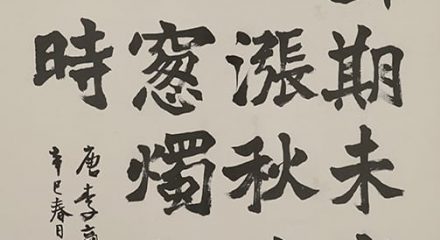 期未
漲秋
窓燭
時
唐李商
辛巳春日